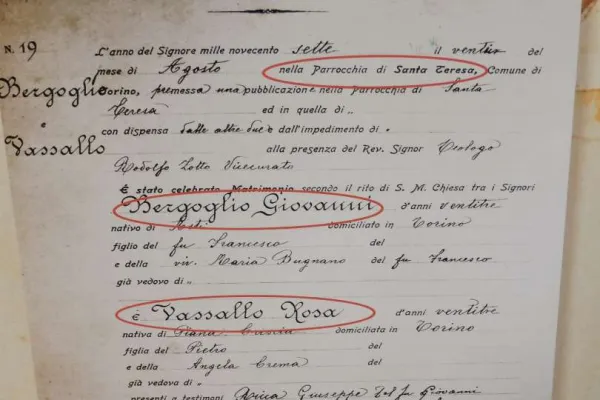 N. 19 L'anno del Signore mille novecento sette il ventun del
mese di Agosto nella Parrocchia di Santa Teresa, Comune di
Bergoglio Torino, premessa una pubblicazione nella Parrocchia di Santa
Teresa ed in quella di "
e con dispensa dalle altre due e dall'impedimento di "
Vassallo alla presenza del Rev. Signor Teologo
Rodolfo Lotto Vicecurato
È stato celebrato Matrimonio secondo il rito di S. M. Chiesa tra i Signori
Bergoglio Giovanni d'anni ventitre
nativo di Asti domiciliato in Torino
figlio del fu Francesco del
e della viv. Maria Bugnano del fu Francesco
già vedovo di "
E Vassallo Rosa d'anni ventitre
nativa di Piana Crixia domiciliata in Torino
figlia del Pietro del
e della Angela Crema del
già vedova di "
presenti a testimoni Ricca Giuseppe del fu Giovanni